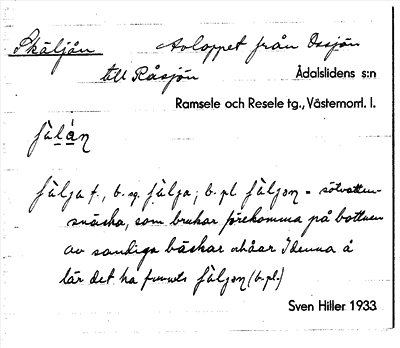 Skäljån Avloppet från Ossjön
till Råsjön Ådalslidens s:n
Ramsele och Resele tg., Västernorrl. l.
ʃälán
ʃälja f., b. sg. ʃälja; b. pl ʃäljen = sötvattens-
snäcka, som brukar förekomma på bottnen
av sandiga bäckar och åar I denna å
lär det ha funnits ʃäljen (b. pl.)
Sven Hiller 1933